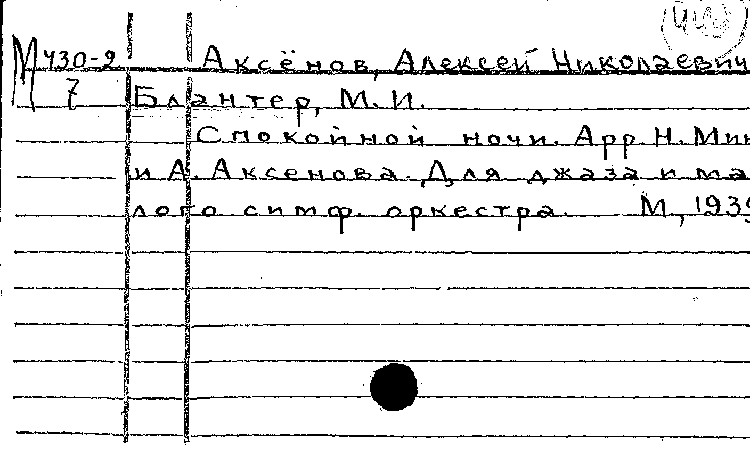 М 430-2 Аксёнов, Алексей Николаевич
7 Блантер, М. И.
Спокойной ночи. Арр. Н.
и А. Аксенова. Для джаза и ма
лого симф. оркестра. М., 1939